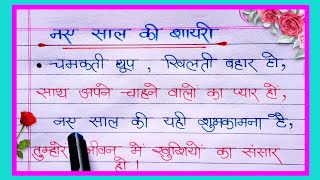 नए साल की शायरी
चमकती धूप, खिलती बहार हो,
साथ अपने चाहने वालों का प्यार हो,
नए साल की यही शुभकामना है,
तुम्हारे जीवन में खुशियों का संसार
हो!